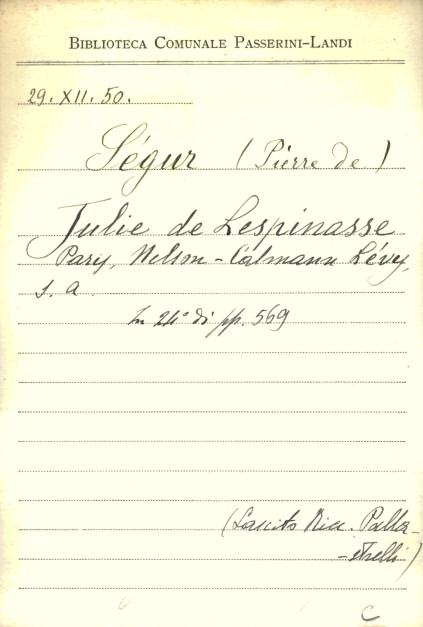 BIBLIOTECA COMUNALE PASSERINI-LANDI
29. XII. 50.
Ségur (Pierre de)
Julie de Lespinasse
Pary, Nelson - Calmann Lévy,
s. a.
In 24° di pp. 569
(Lascito Ricc. Palla-
-strelli)
C